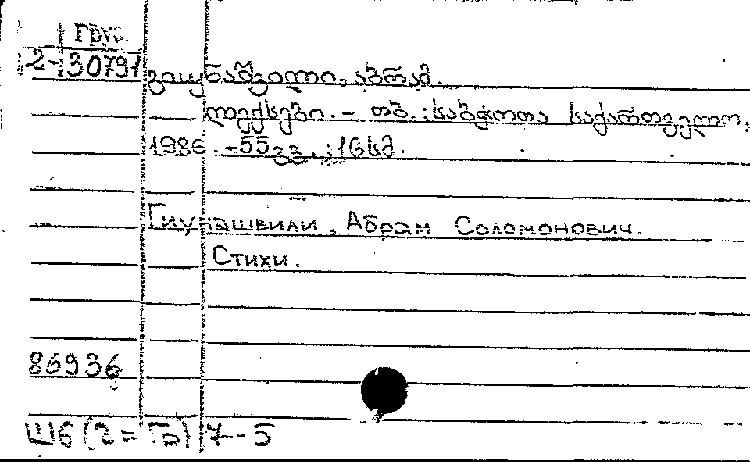 Груз.
2-30791
გიუნაშვილი, აბრამ.
ლექსები. - თბ. : საბჭოთა საქართველო,
1986. - 55 გვ. ; 16 სმ.
Гиунашвили, Абрам Соломонович.
Стихи.
86936
Ш6(2=Гр)7-5